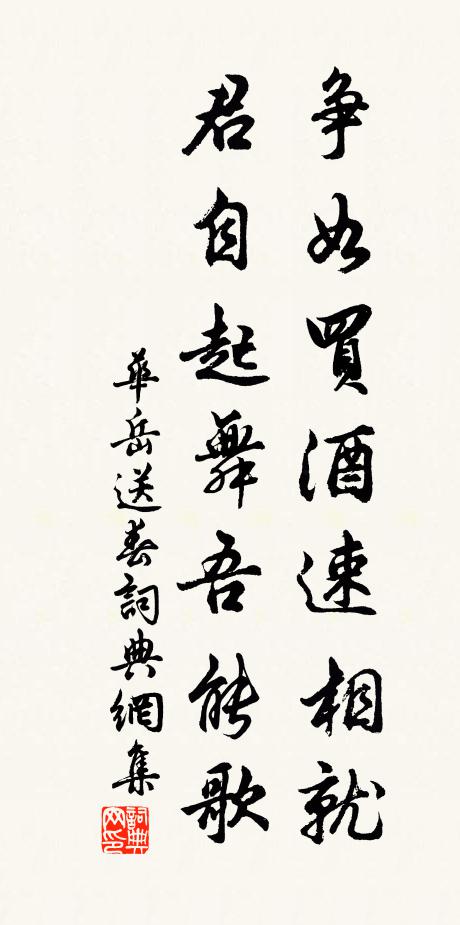 争如買酒速相就
君自起舞吾能歌
華岳送春詞典網集
詞典网印